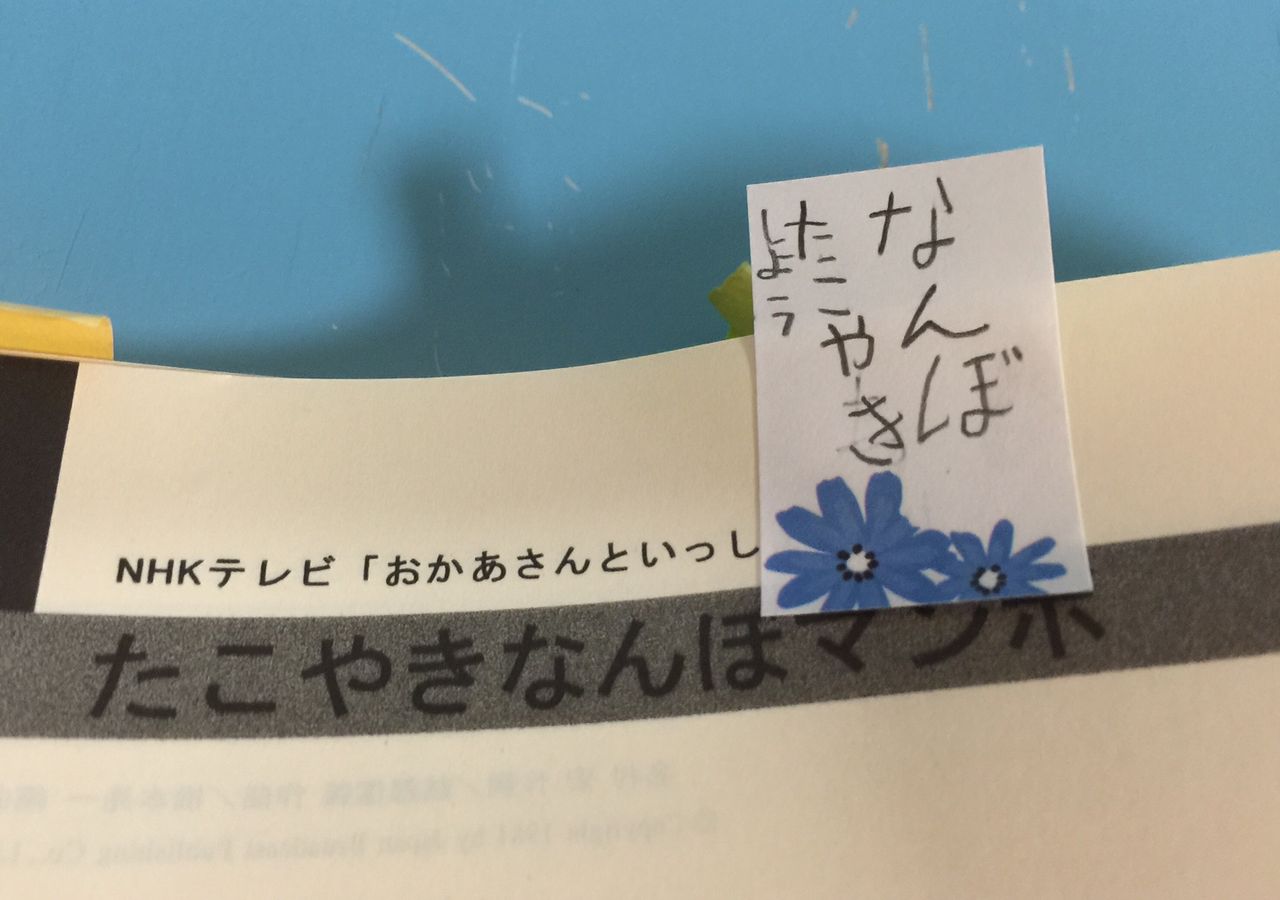 なんぼ
たこやき
しょう
NHKテレビ「おかあさんといっし
たこやきなんぼマンボ